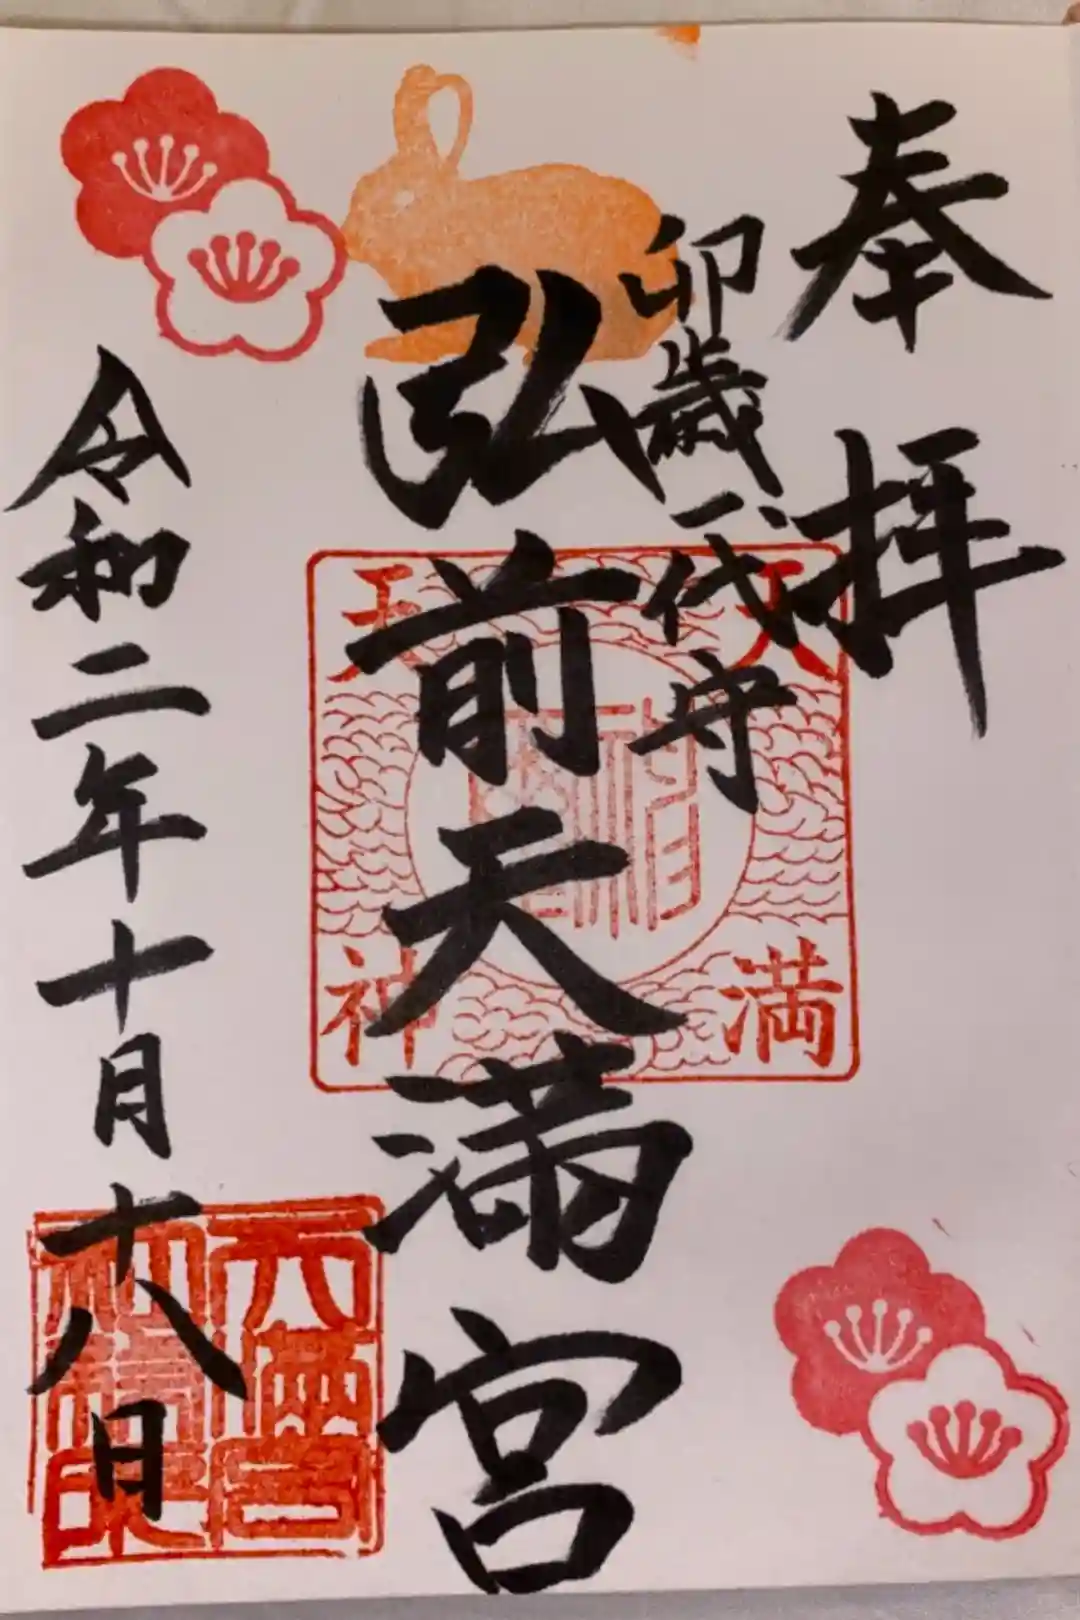 奉拝
卯歳一代守
弘前天満宮
令和二年十月十八日
天満
天神